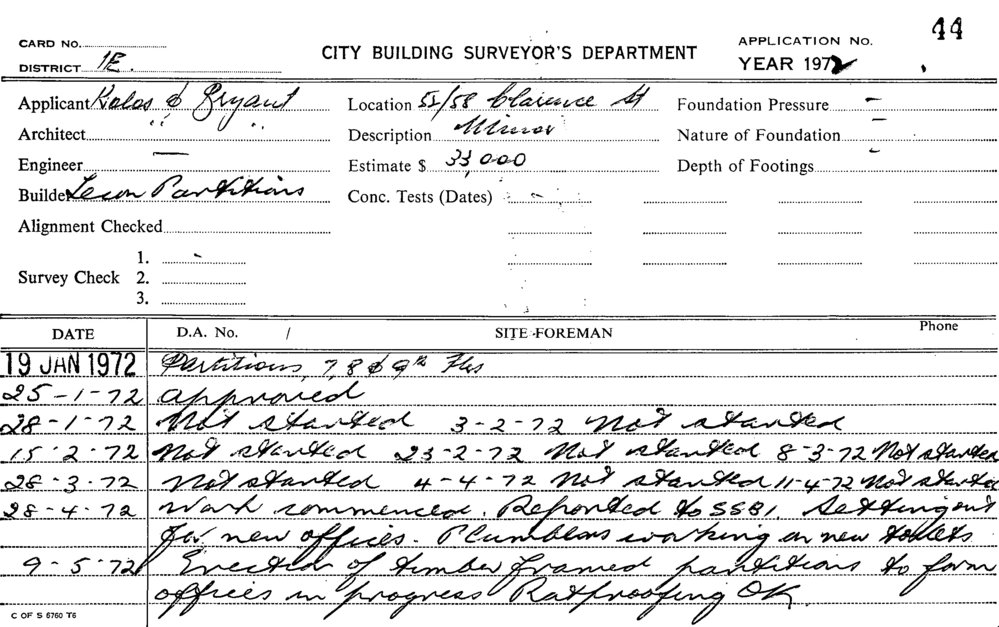 44
CARD No.
CITY BUILDING SURVEYOR'S DEPARTMENT
APPLICATION No.
DISTRICT 1E.
YEAR 1972
Applicant Kalas & Bryant
Location 51/58 Clarence St
Foundation Pressure -
Architect " "
Description Minor
Nature of Foundation -
Engineer —
Estimate $ 33,000
Depth of Footings -
Builder Leon Partitions
Conc. Tests (Dates) -
Alignment Checked
1. -
Survey Check 2.
3.
DATE D.A. No. / SITE FOREMAN Phone
19 JAN 1972 Partitions, 7, 8 & 9th Flrs
25-1-72 approved
28-1-72 Not started 3-2-72 Not started
15-2-72 Not started 23-2-72 Not started 8-3-72 Not started
28-3-72 Not started 4-4-72 Not started 11-4-72 Not started
28-4-72 Work commenced. Reported to SSBI. Setting out
for new offices. Plumbers working on new toilets
9-5-72 Erection of timber framed partitions to form
offices in progress Ratproofing OK.
C OF S 6760 T6